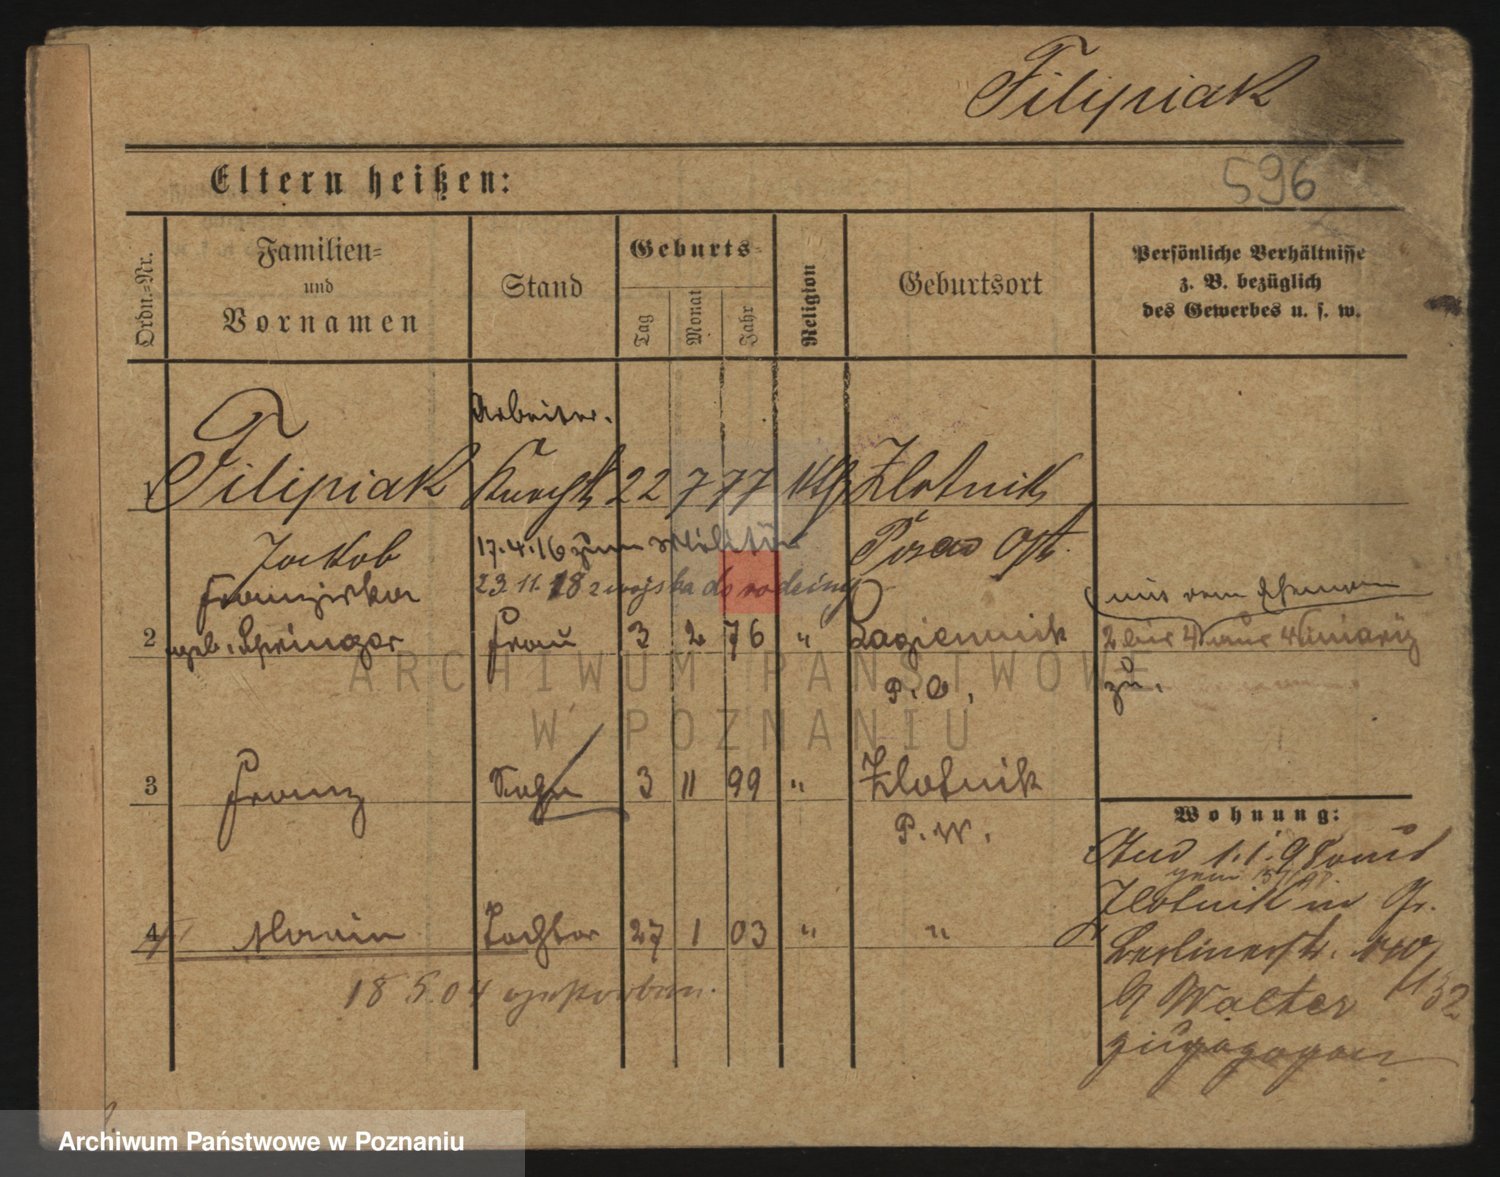 Filipiak
596
Eltern heißen:
Ordn.=Nr.
Familien=
und
Vornamen
Stand
Geburts=
Tag
Monat
Jahr
Religion
Geburtsort
Persönliche Verhältnisse
z. B. bezüglich
des Gewerbes u. s. w.
Arbeiter.
1 Filipiak Knecht 22 7 77 Klg Zlotnik
Jakob 17.4.16 zum Militär Posen Ost.
Franziska 23 11 18 z wojska do rodziny mit dem Ehemann
2 geb. Springer Frau 3 2 76 " Lagiewnik
P. O. zu.
3 Franz Sohn 3 11 99 " Zlotnik
P. W.
Wohnung:
1.1.98
Zlotnik in Gr.
4 Tochter 27 1 03 " "
Berlinerstr.
18 5.04 gestorben.
Walter
zugezogen
ARCHIWUM PAŃSTWOWE
W POZNANIU
Archiwum Państwowe w Poznaniu